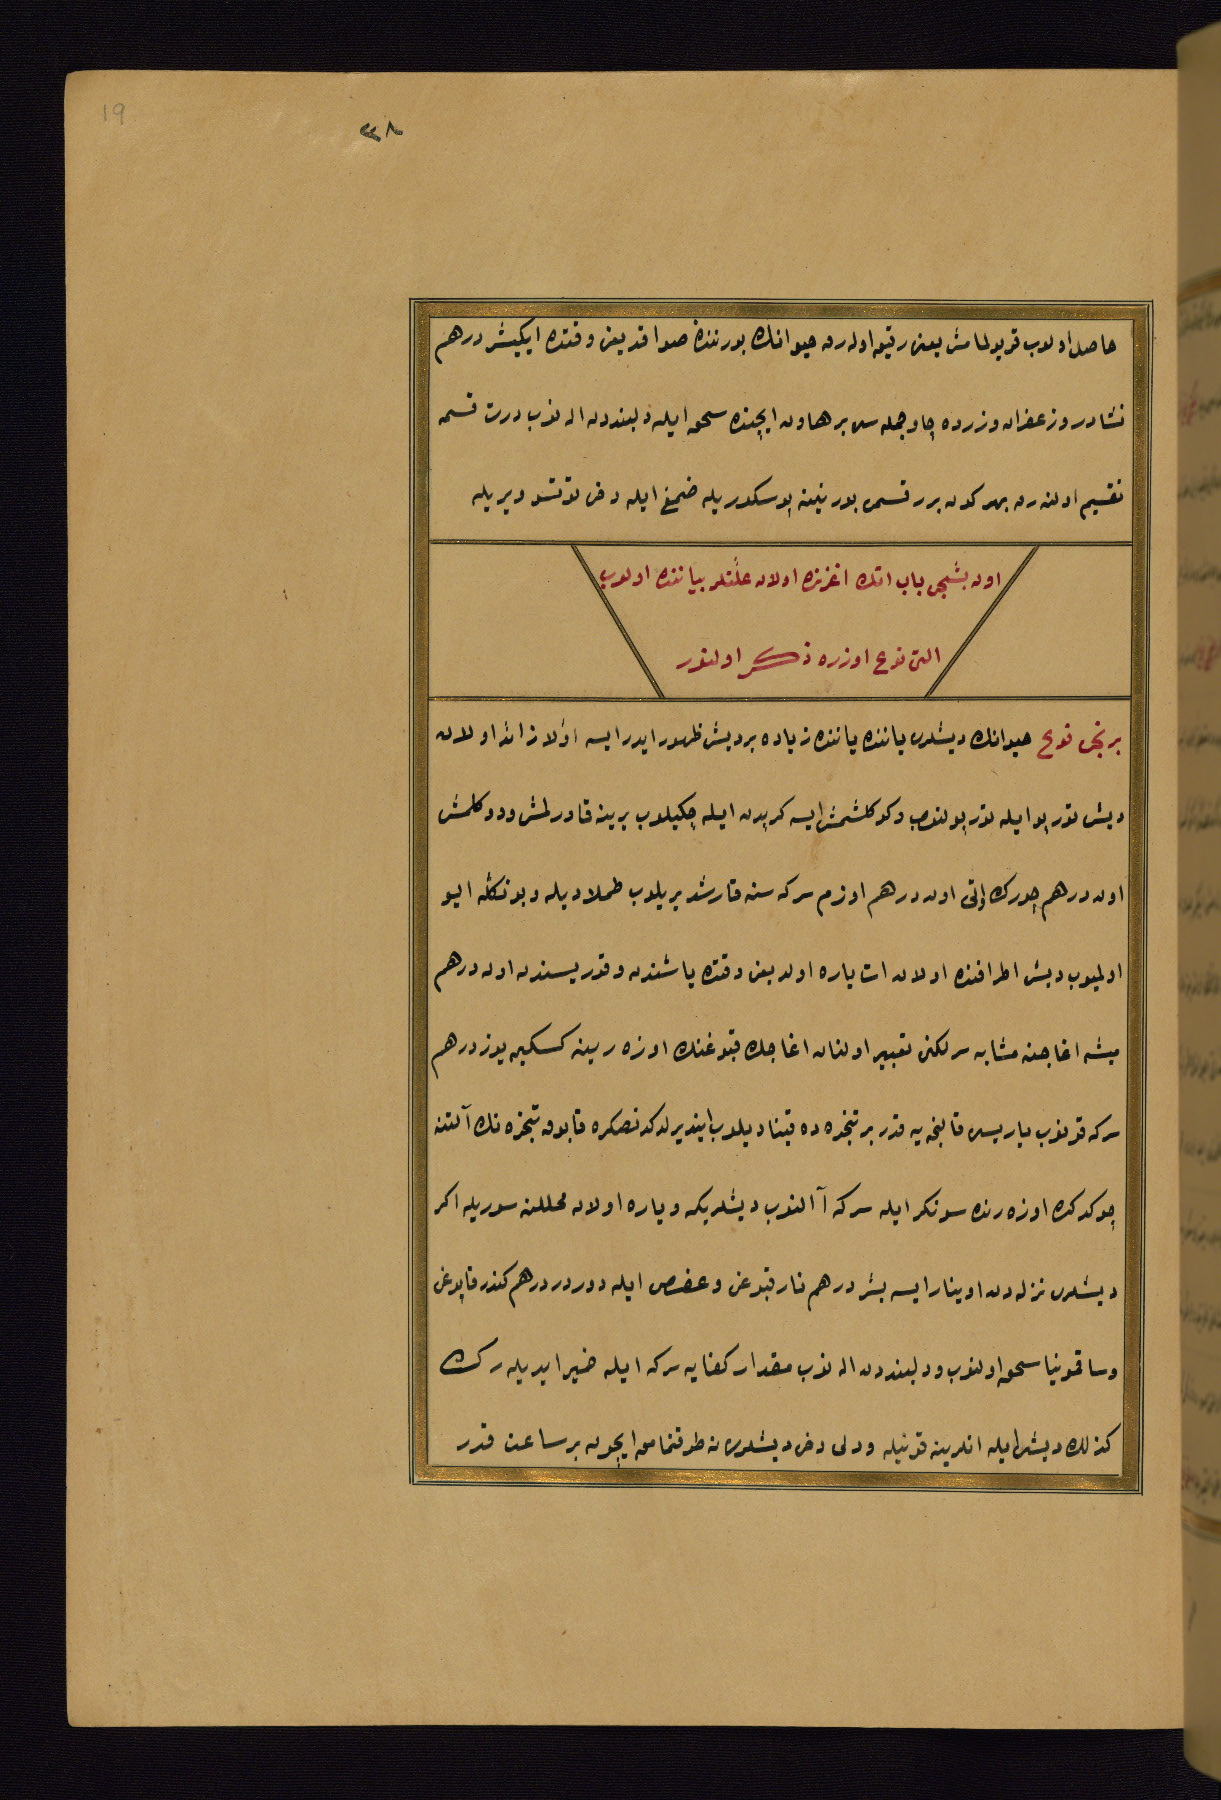 19
٣٨
حاصل اولوب قریولمامش یعنی رقیق اوله رق حیوانك بورننده صو اقدیغی وقتده ایکیشر درهم
نشادر وزعفران وزرده چاو جمله سی بر هاون ایچنده سحق ایله دلبنددن اله نوب درت قسمه
تقسیم اولنه رق بهر کون برر قسمی بورنینه پوسکوریله ضمغ ایله دخی توتسو ویریله
اون بشنجی باب اتك اغزنده اولان علتلر بیاننده اولوب
التی نوع اوزره ذکر اولنور
برنجی نوع حیوانك دیشلری یاننده یاننده زیاده بر دیش ظهور ایدر ایسه اولا زائد اولان
دیش تورپو ایله تورپولنوب وکوکلشمش ایسه کرپدن ایله چکیلوب یرینه قاورلمش ودوکلمش
اون درهم چورك اوتی اون درهم اوزم سرکه سنه قارشدیریلوب طملادیله وبونکله ایو
اولمیوب دیش اطرافنده اولان ات یاره اولدیغی وقتده یاشندن وقوریسندن اون درهم
میشه اغاجنه مشابه سرلکن تعبیر اولنان اغاجك قبوغنك اوزه رینه کسکین یوز درهم
سرکه قونوب یاریسی قالنجه یه قدر بر تنجره ده قینادیلوب ایندیرلدکدنصکره قابوق تنجره نك آلتنه
چوکدکده اوزه رنده سونکر ایله سرکه آلنوب دیشلرینه ویاره اولان محللنه سوریله اکر
دیشلری نزله دن اوینار ایسه بشر درهم نار قبوغی وعفص ایله دوردر درهم کندر قابوغی
وساقمونیا سحق اولنوب ودلبنددن اله نوب مقدار کفایه سرکه ایله خمیر ایدیله رك
کذلك دیشلر ایله اتلرینه قونیله ودلی دخی دیشلری نه طوقنمامق ایچون بر ساعت قدر